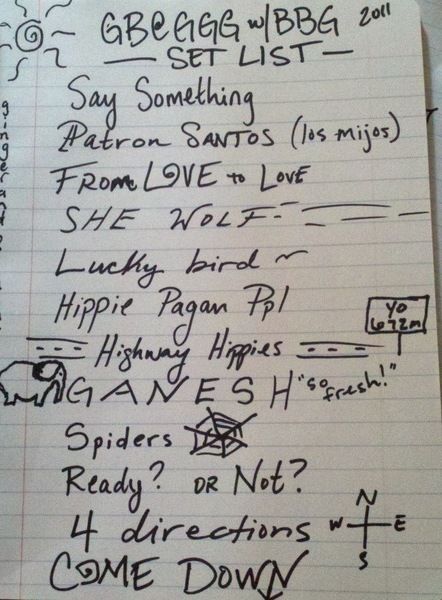 GB@GGG w/BBG 2011
— SET LIST —
Say Something
Patron SANTOS (los mijos)
FROM LOVE to LOVE
SHE WOLF
Lucky bird ~
Hippie Pagan Ppl
YO
672m
Highway Hippies
GANESH "so fresh!"
Spiders
Ready? OR Not?
4 directions
N
W E
S
COME DOWN